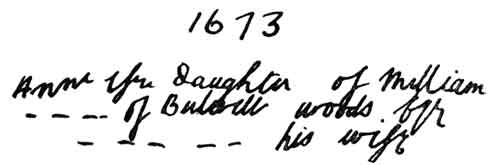 1673
Anne the Daughter of William
---- of Bulwell woods by
- - - - his wife